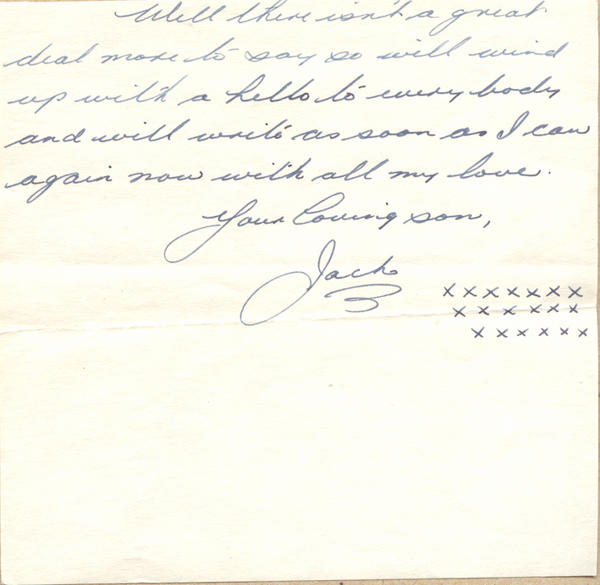 Well there isn't a great
deal more to say so will wind
up with a hello to every body
and will write as soon as I can
again now with all my love.
Your loving son,
Jack
x x x x x x x
x x x x x x
x x x x x x